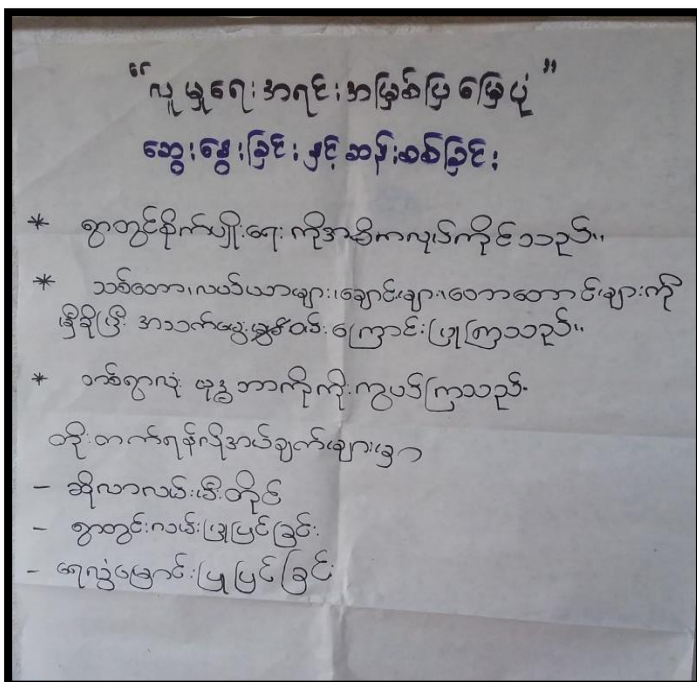 "လူမှုရေးအရင်းအမြစ်ပြမြေပုံ"
ဆွေးနွေးခြင်းနှင့်ဆန်းစစ်ခြင်း
* ရွာတွင်စိုက်ပျိုးရေးကိုအဓိကလုပ်ကိုင်သည်။
* သစ်တော၊လယ်ယာများ၊ချောင်းများ၊တောတောင်များကို
မှီခိုပြီး အသက်မွေးဝမ်းကြောင်းပြုကြသည်။
* တစ်ရွာလုံး ဗုဒ္ဓဘာသာကိုးကွယ်ကြသည်။
တိုးတက်ရန်လိုအပ်ချက်များမှာ
- ဆိုလာလမ်းမီးတိုင်
- ရွာတွင်းလမ်းပြုပြင်ခြင်း
- ရေလွှဲမြောင်းပြုပြင်ခြင်း